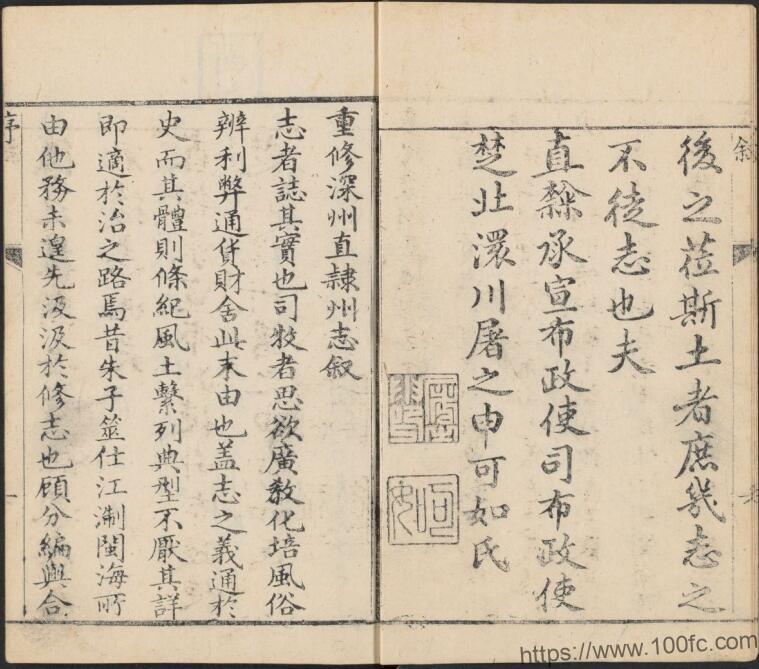 後之莅斯土者庶幾志之
不徒志也夫
直隸承宣布政使司布政使
楚北澴川屠之申可如氏
重修深州直隸州志叙
志者誌其實也司牧者思欲廣教化培風俗
辨利弊通貨財舍此末由也盖志之義通於
史而其體則條紀風土繫列典型不厭其詳
即適於治之路焉昔朱子筮仕江淛閩海所
由他務未遑先汲汲於修志也顧分編與合
序
一
https://www.100fc.com